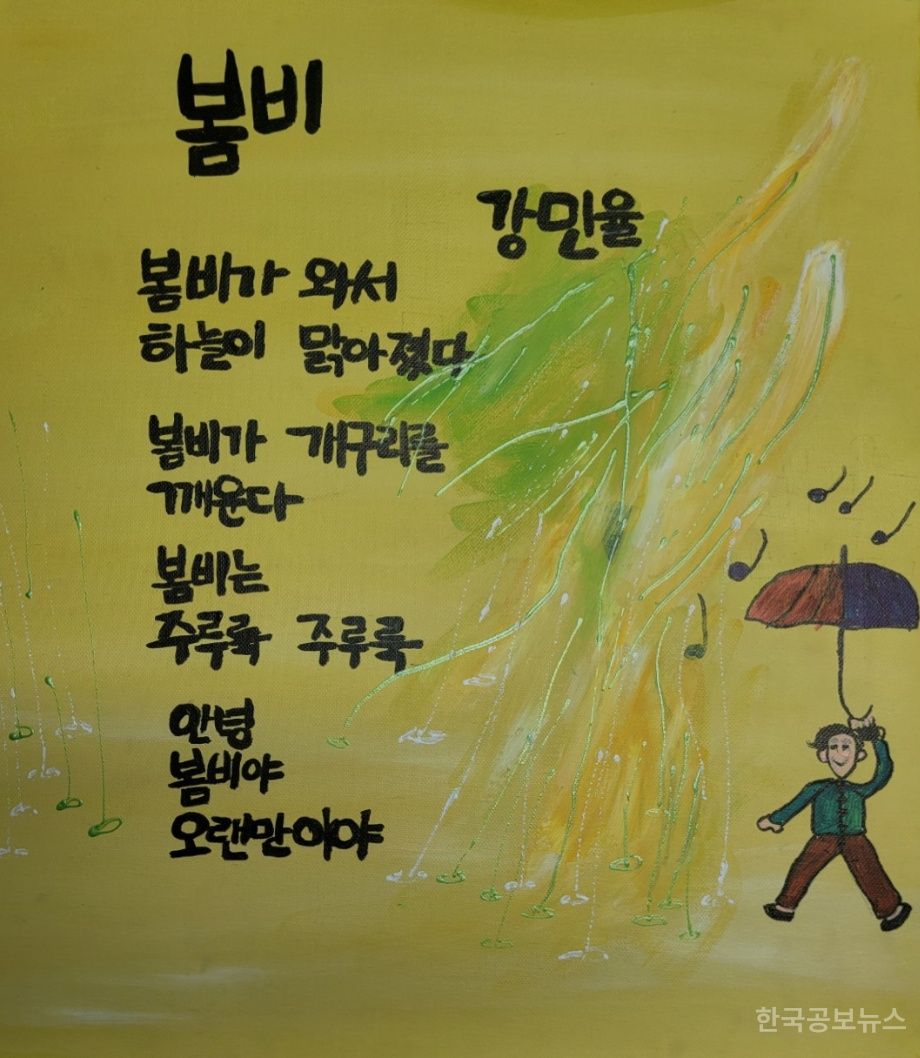 봄비
강민율
봄비가 와서
하늘이 맑아졌다
봄비가 개구리를
깨운다
봄비는
주루룩 주루룩
안녕
봄비야
오랜만이야
한국공보뉴스